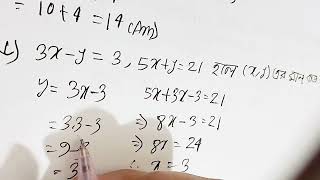 = 10+4 = 14 (Ans)
3x-y = 3, 5x+y = 21 হলে (x,y) এর মান
y = 3x-3 5x+3x-3=21
= 3.3-3 ⇒ 8x-3=21
= 9-3 ⇒ 8x = 24
= 3 ∴ x = 3